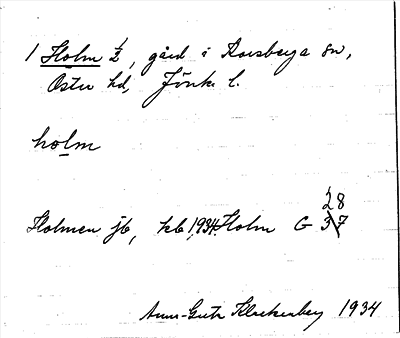 1 Holm ½, gård i Korsberga sn,
Östra hd, Jönk. l.
holm
28
Holmen jb, kb 1934. Holm G 37
Ann-Gute Klockenberg 1934